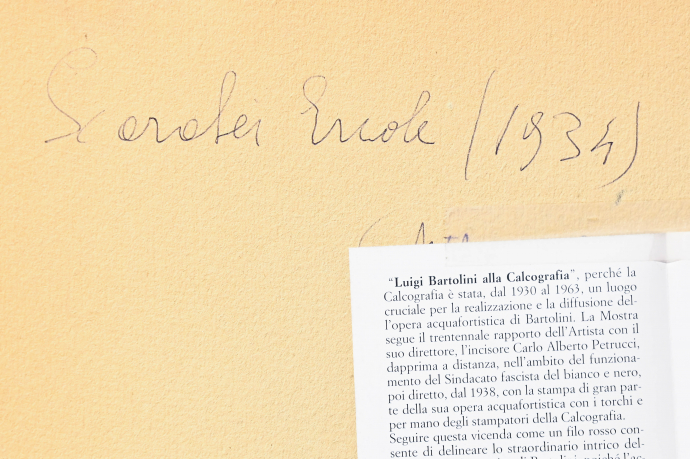 Scarabei Ercole (1934)
“Luigi Bartolini alla Calcografia”, perché la
Calcografia è stata, dal 1930 al 1963, un luogo
cruciale per la realizzazione e la diffusione del-
l’opera acquafortistica di Bartolini. La Mostra
segue il trentennale rapporto dell’Artista con il
suo direttore, l’incisore Carlo Alberto Petrucci,
dapprima a distanza, nell’ambito del funziona-
mento del Sindacato fascista del bianco e nero,
poi diretto, dal 1938, con la stampa di gran par-
te della sua opera acquafortistica con i torchi e
per mano degli stampatori della Calcografia.
Seguire questa vicenda come un filo rosso con-
sente di delineare lo straordinario intrico del-
di Bartolini, poiché l’ac-